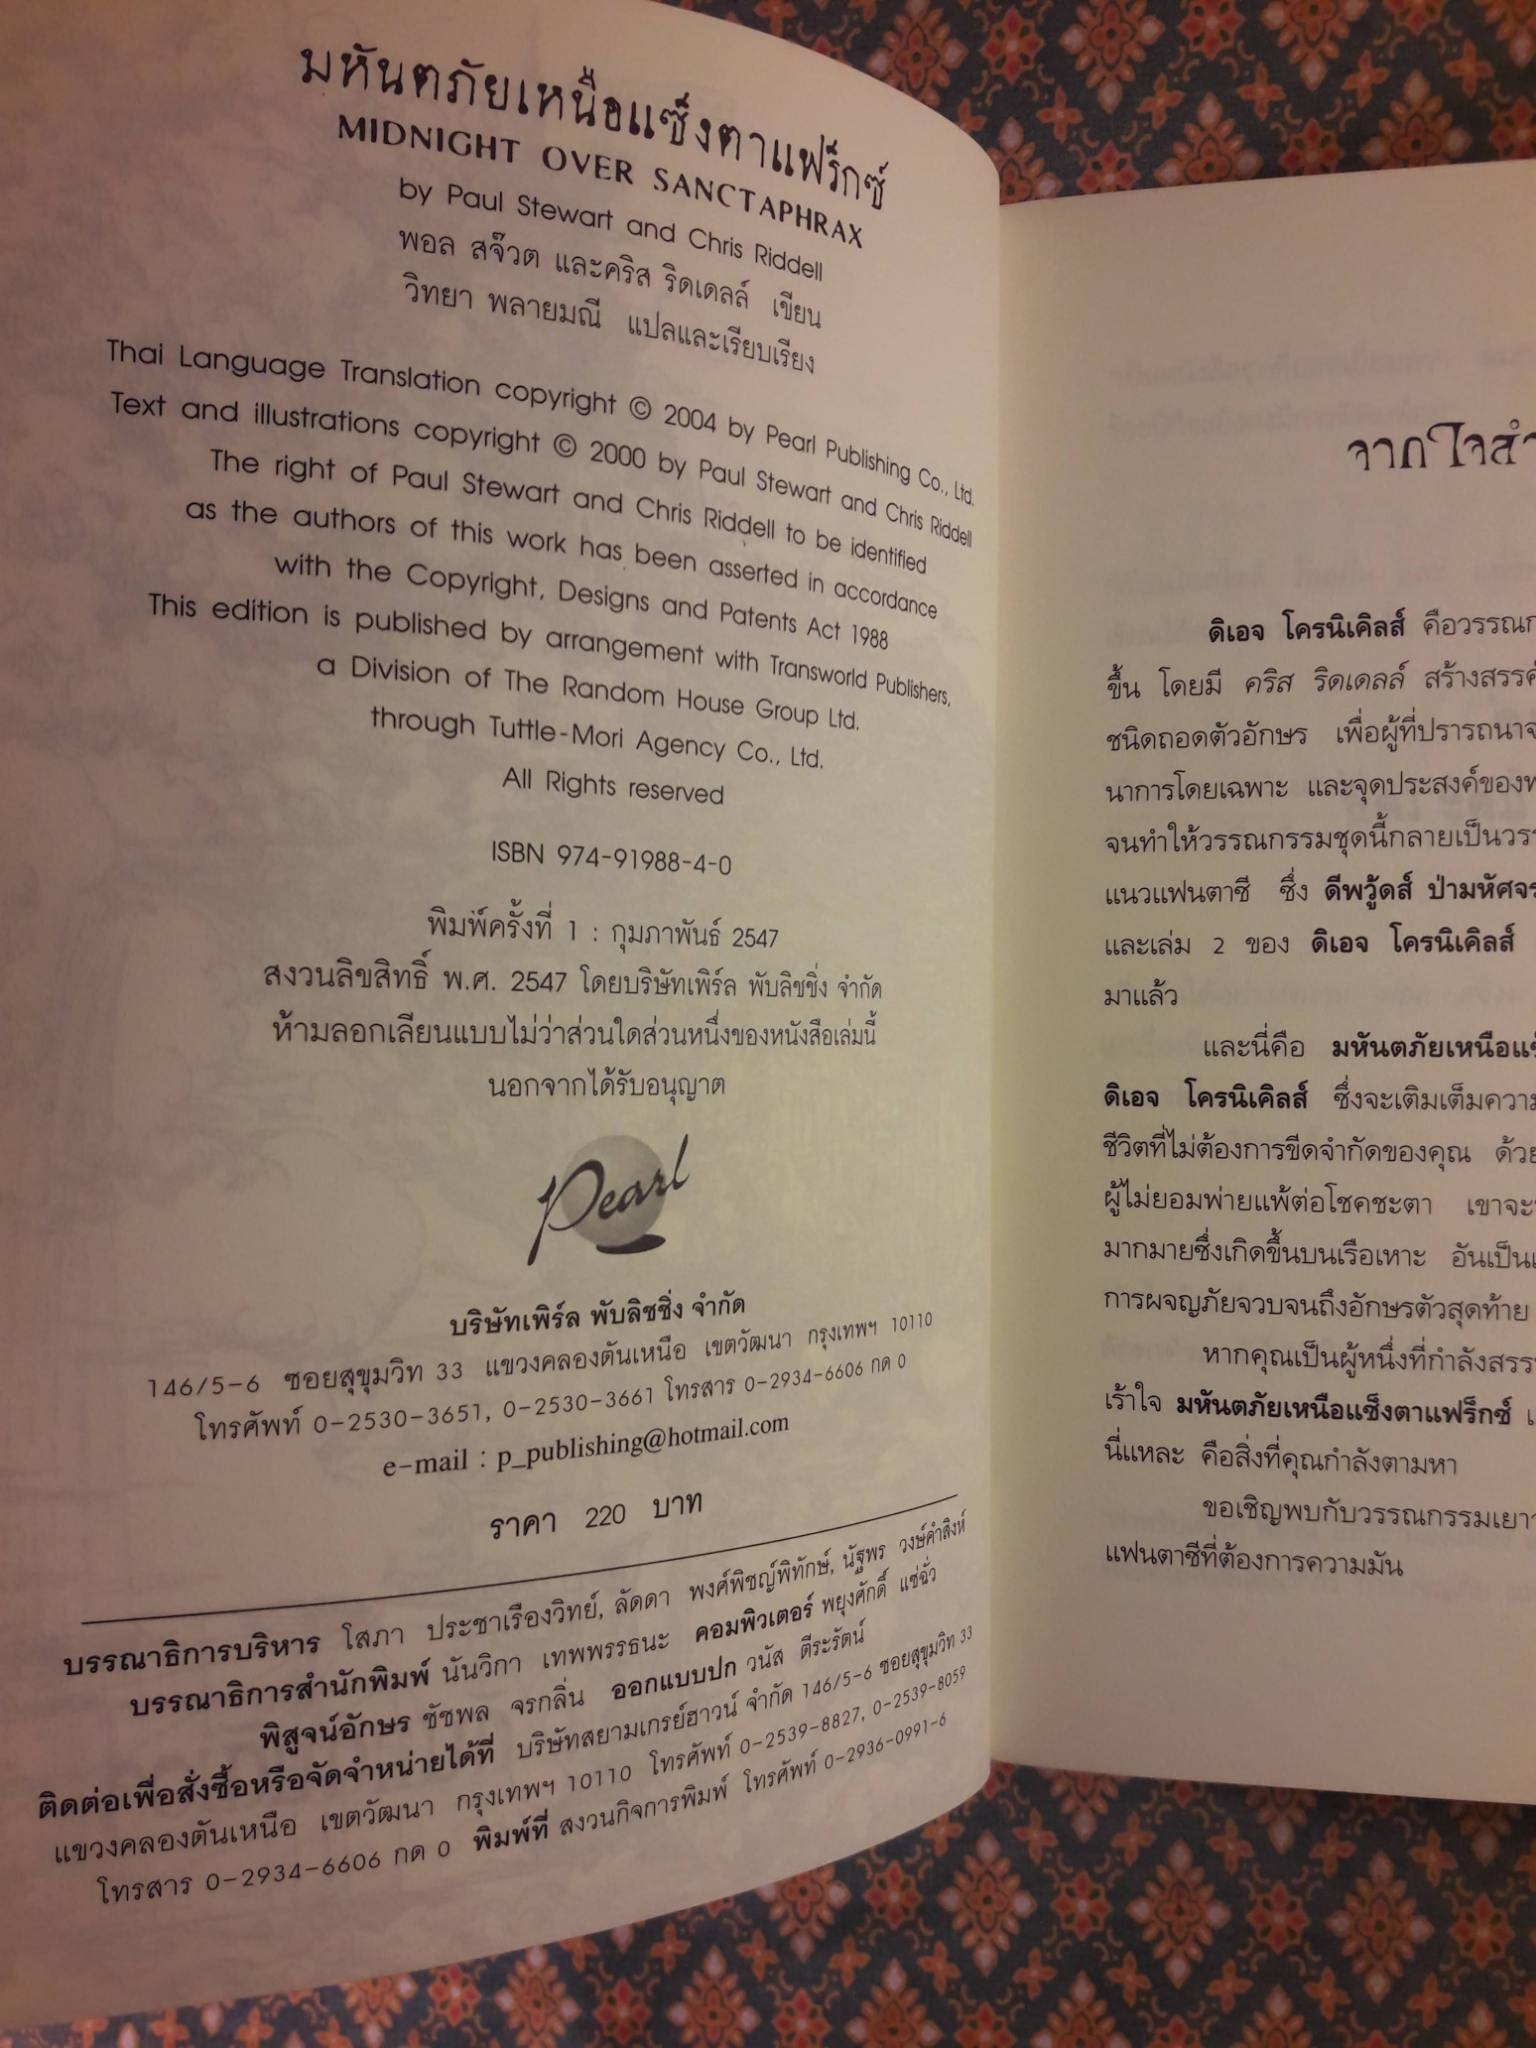 มหันตภัยเหนือแซ็งตาแฟร็กซ์
MIDNIGHT OVER SANCTAPHRAX
by Paul Stewart and Chris Riddell
พอล สจ๊วต และคริส ริดเดลล์ เขียน
วิทยา พลายมณี แปลและเรียบเรียง
Thai Language Translation copyright © 2004 by Pearl Publishing Co., Ltd.
Text and illustrations copyright © 2000 by Paul Stewart and Chris Riddell
The right of Paul Stewart and Chris Riddell to be identified
as the authors of this work has been asserted in accordance
with the Copyright, Designs and Patents Act 1988
This edition is published by arrangement with Transworld Publishers,
a Division of The Random House Group Ltd.
through Tuttle-Mori Agency Co., Ltd.
All Rights reserved
ISBN 974-91988-4-0
พิมพ์ครั้งที่ 1 : กุมภาพันธ์ 2547
สงวนลิขสิทธิ์ พ.ศ. 2547 โดยบริษัทเพิร์ล พับลิชชิ่ง จำกัด
ห้ามลอกเลียนแบบไม่ว่าส่วนใดส่วนหนึ่งของหนังสือเล่มนี้
นอกจากได้รับอนุญาต
Pearl
บริษัทเพิร์ล พับลิชชิ่ง จำกัด
146/5-6 ซอยสุขุมวิท 33 แขวงคลองตันเหนือ เขตวัฒนา กรุงเทพฯ 10110
โทรศัพท์ 0-2530-3651, 0-2530-3661 โทรสาร 0-2934-6606 กด 0
e-mail : p_publishing@hotmail.com
ราคา 220 บาท
บรรณาธิการบริหาร โสภา ประชาเรืองวิทย์, ลัดดา พงศ์พิชญ์พิทักษ์, นัฐพร วงษ์คำสิงห์
บรรณาธิการสำนักพิมพ์ นันวิกา เทพพรรธนะ คอมพิวเตอร์ พยุงศักดิ์ แซ่ฉั่ว
พิสูจน์อักษร ชัชพล จรกลิ่น ออกแบบปก วนัส ตีระรัตน์
ติดต่อเพื่อสั่งซื้อหรือจัดจำหน่ายได้ที่ บริษัทสยามเกรย์ฮาวน์ จำกัด 146/5-6 ซอยสุขุมวิท 33
แขวงคลองตันเหนือ เขตวัฒนา กรุงเทพฯ 10110 โทรศัพท์ 0-2539-8827, 0-2539-8059
โทรสาร 0-2934-6606 กด 0 พิมพ์ที่ สงวนกิจการพิมพ์ โทรศัพท์ 0-2936-0991-6
จากใจสำ
ดิเอจ โครนิเคิลส์ คือวรรณก
ขึ้น โดยมี คริส ริดเดลล์ สร้างสรรค์
ชนิดถอดตัวอักษร เพื่อผู้ที่ปรารถนาจ
นาการโดยเฉพาะ และจุดประสงค์ของพ
จนทำให้วรรณกรรมชุดนี้กลายเป็นวรร
แนวแฟนตาซี ซึ่ง ดีพวู้ดส์ ป่ามหัศจร
และเล่ม 2 ของ ดิเอจ โครนิเคิลส์
มาแล้ว
และนี่คือ มหันตภัยเหนือแซ็
ดิเอจ โครนิเคิลส์ ซึ่งจะเติมเต็มความ
ชีวิตที่ไม่ต้องการขีดจำกัดของคุณ ด้วย
ผู้ไม่ยอมพ่ายแพ้ต่อโชคชะตา เขาจะ
มากมายซึ่งเกิดขึ้นบนเรือเหาะ อันเป็น
การผจญภัยจวบจนถึงอักษรตัวสุดท้าย
หากคุณเป็นผู้หนึ่งที่กำลังสรร
เร้าใจ มหันตภัยเหนือแซ็งตาแฟร็กซ์
นี่แหละ คือสิ่งที่คุณกำลังตามหา
ขอเชิญพบกับวรรณกรรมเยาว
แฟนตาซีที่ต้องการความมัน